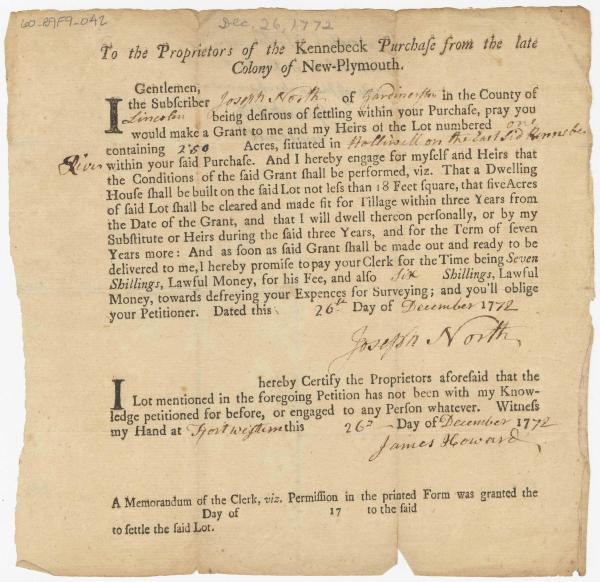 60-89F9-042
Dec. 26, 1772
To the Proprietors of the Kennebeck Purchaſe from the late
Colony of New-Plymouth.
Gentlemen,
I the Subſcriber Joseph North of Gardinerston in the County of
Lincoln being deſirous of ſettling within your Purchaſe, pray you
would make a Grant to me and my Heirs of the Lot numbered one
containing 250 Acres, ſituated in Hallowell on the East Sd Kennebec
River within your ſaid Purchaſe. And I hereby engage for myſelf and Heirs that
the Conditions of the ſaid Grant ſhall be performed, viz. That a Dwelling
Houſe ſhall be built on the ſaid Lot not leſs than 18 Feet ſquare, that five Acres
of ſaid Lot ſhall be cleared and made fit for Tillage within three Years from
the Date of the Grant, and that I will dwell thereon perſonally, or by my
Subſtitute or Heirs during the ſaid three Years, and for the Term of ſeven
Years more: And as ſoon as ſaid Grant ſhall be made out and ready to be
delivered to me, I hereby promiſe to pay your Clerk for the Time being Seven
Shillings, Lawful Money, for his Fee, and alſo six Shillings, Lawful
Money, towards defreying your Expences for Surveying; and you'll oblige
your Petitioner. Dated this 26th Day of December 1772
Joseph North
I hereby Certify the Proprietors aforeſaid that the
Lot mentioned in the foregoing Petition has not been with my Know-
ledge petitioned for before, or engaged to any Perſon whatever. Witneſs
my Hand at Fort western this 26th Day of December 1772
James Howard
A Memorandum of the Clerk, viz. Permiſſion in the printed Form was granted the
Day of 17 to the ſaid
to ſettle the ſaid Lot.